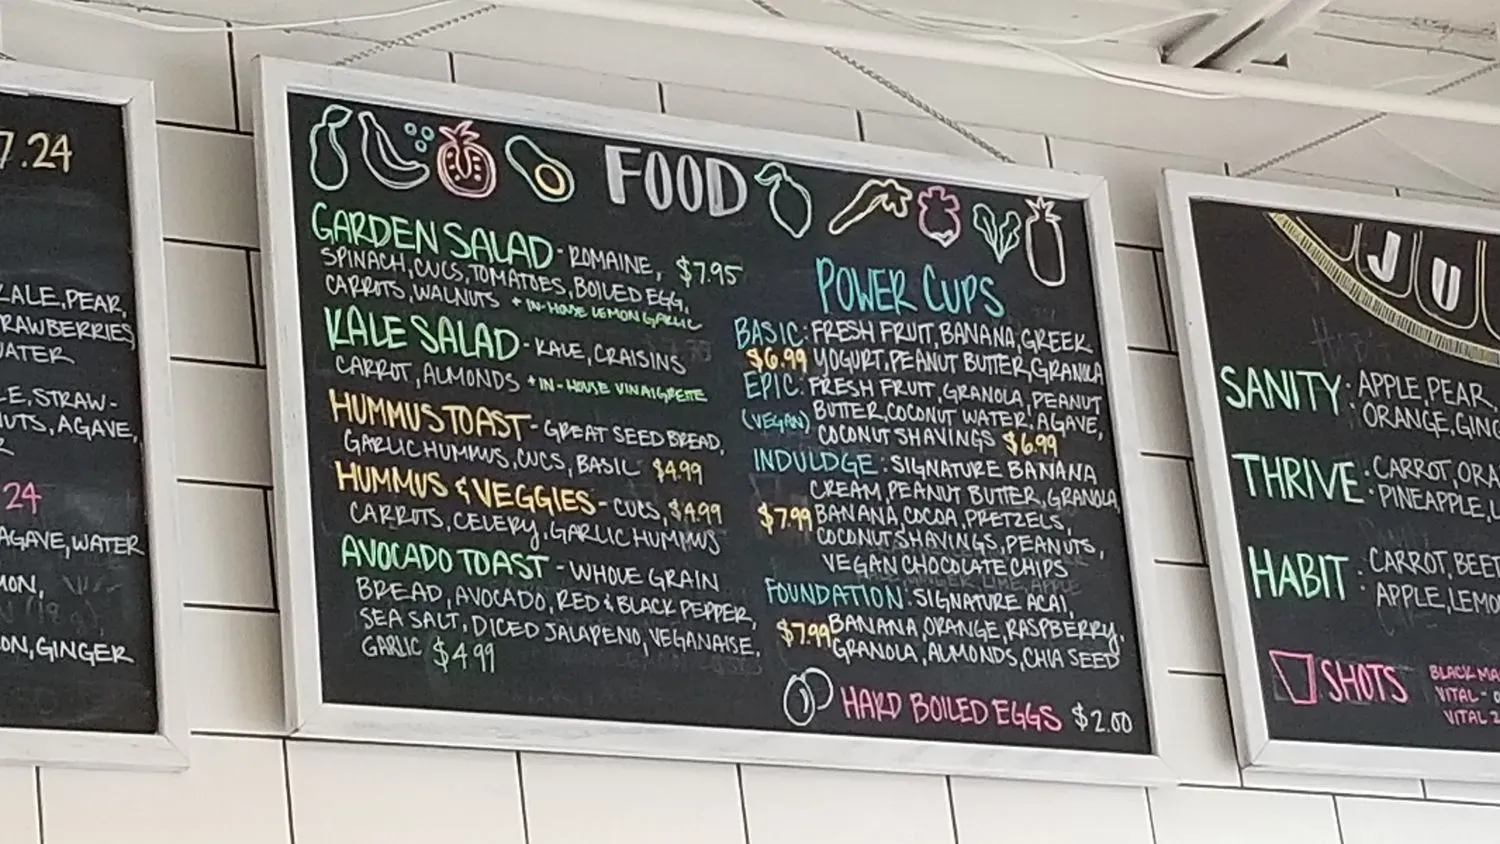 7.24
KALE, PEAR,
STRAWBERRIES,
WATER
STRAW-
AGAVE,
24
AGAVE, WATER
GINGER
FOOD
GARDEN SALAD - ROMAINE, $7.95
SPINACH, CUCS, TOMATOES, BOILED EGG,
CARROTS, WALNUTS + IN-HOUSE LEMON GARLIC
KALE SALAD - KALE, CRAISINS
CARROT, ALMONDS + IN-HOUSE VINAIGRETTE
HUMMUS TOAST - GREAT SEED BREAD,
GARLIC HUMMUS, CUCS, BASIL $4.99
HUMMUS & VEGGIES - CUCS, $4.99
CARROTS, CELERY, GARLIC HUMMUS
AVOCADO TOAST - WHOLE GRAIN
BREAD, AVOCADO, RED & BLACK PEPPER,
SEA SALT, DICED JALAPENO, VEGANAISE,
GARLIC $4.99
POWER CUPS
BASIC: FRESH FRUIT, BANANA, GREEK
$6.99 YOGURT, PEANUT BUTTER, GRANOLA
EPIC: FRESH FRUIT, GRANOLA, PEANUT
(VEGAN) BUTTER, COCONUT WATER, AGAVE,
COCONUT SHAVINGS $6.99
INDULDGE: SIGNATURE BANANA
CREAM, PEANUT BUTTER, GRANOLA,
$7.99 BANANA, COCOA, PRETZELS,
COCONUT SHAVINGS, PEANUTS,
VEGAN CHOCOLATE CHIPS
FOUNDATION: SIGNATURE ACAI,
$7.99 BANANA, ORANGE, RASPBERRY,
GRANOLA, ALMONDS, CHIA SEED
HARD BOILED EGGS $2.00
JU
SANITY: APPLE, PEAR,
ORANGE, GING
THRIVE: CARROT, ORA
PINEAPPLE, L
HABIT: CARROT, BEET
APPLE, LEMO
SHOTS
BLACK MA
VITAL -
VITAL 2